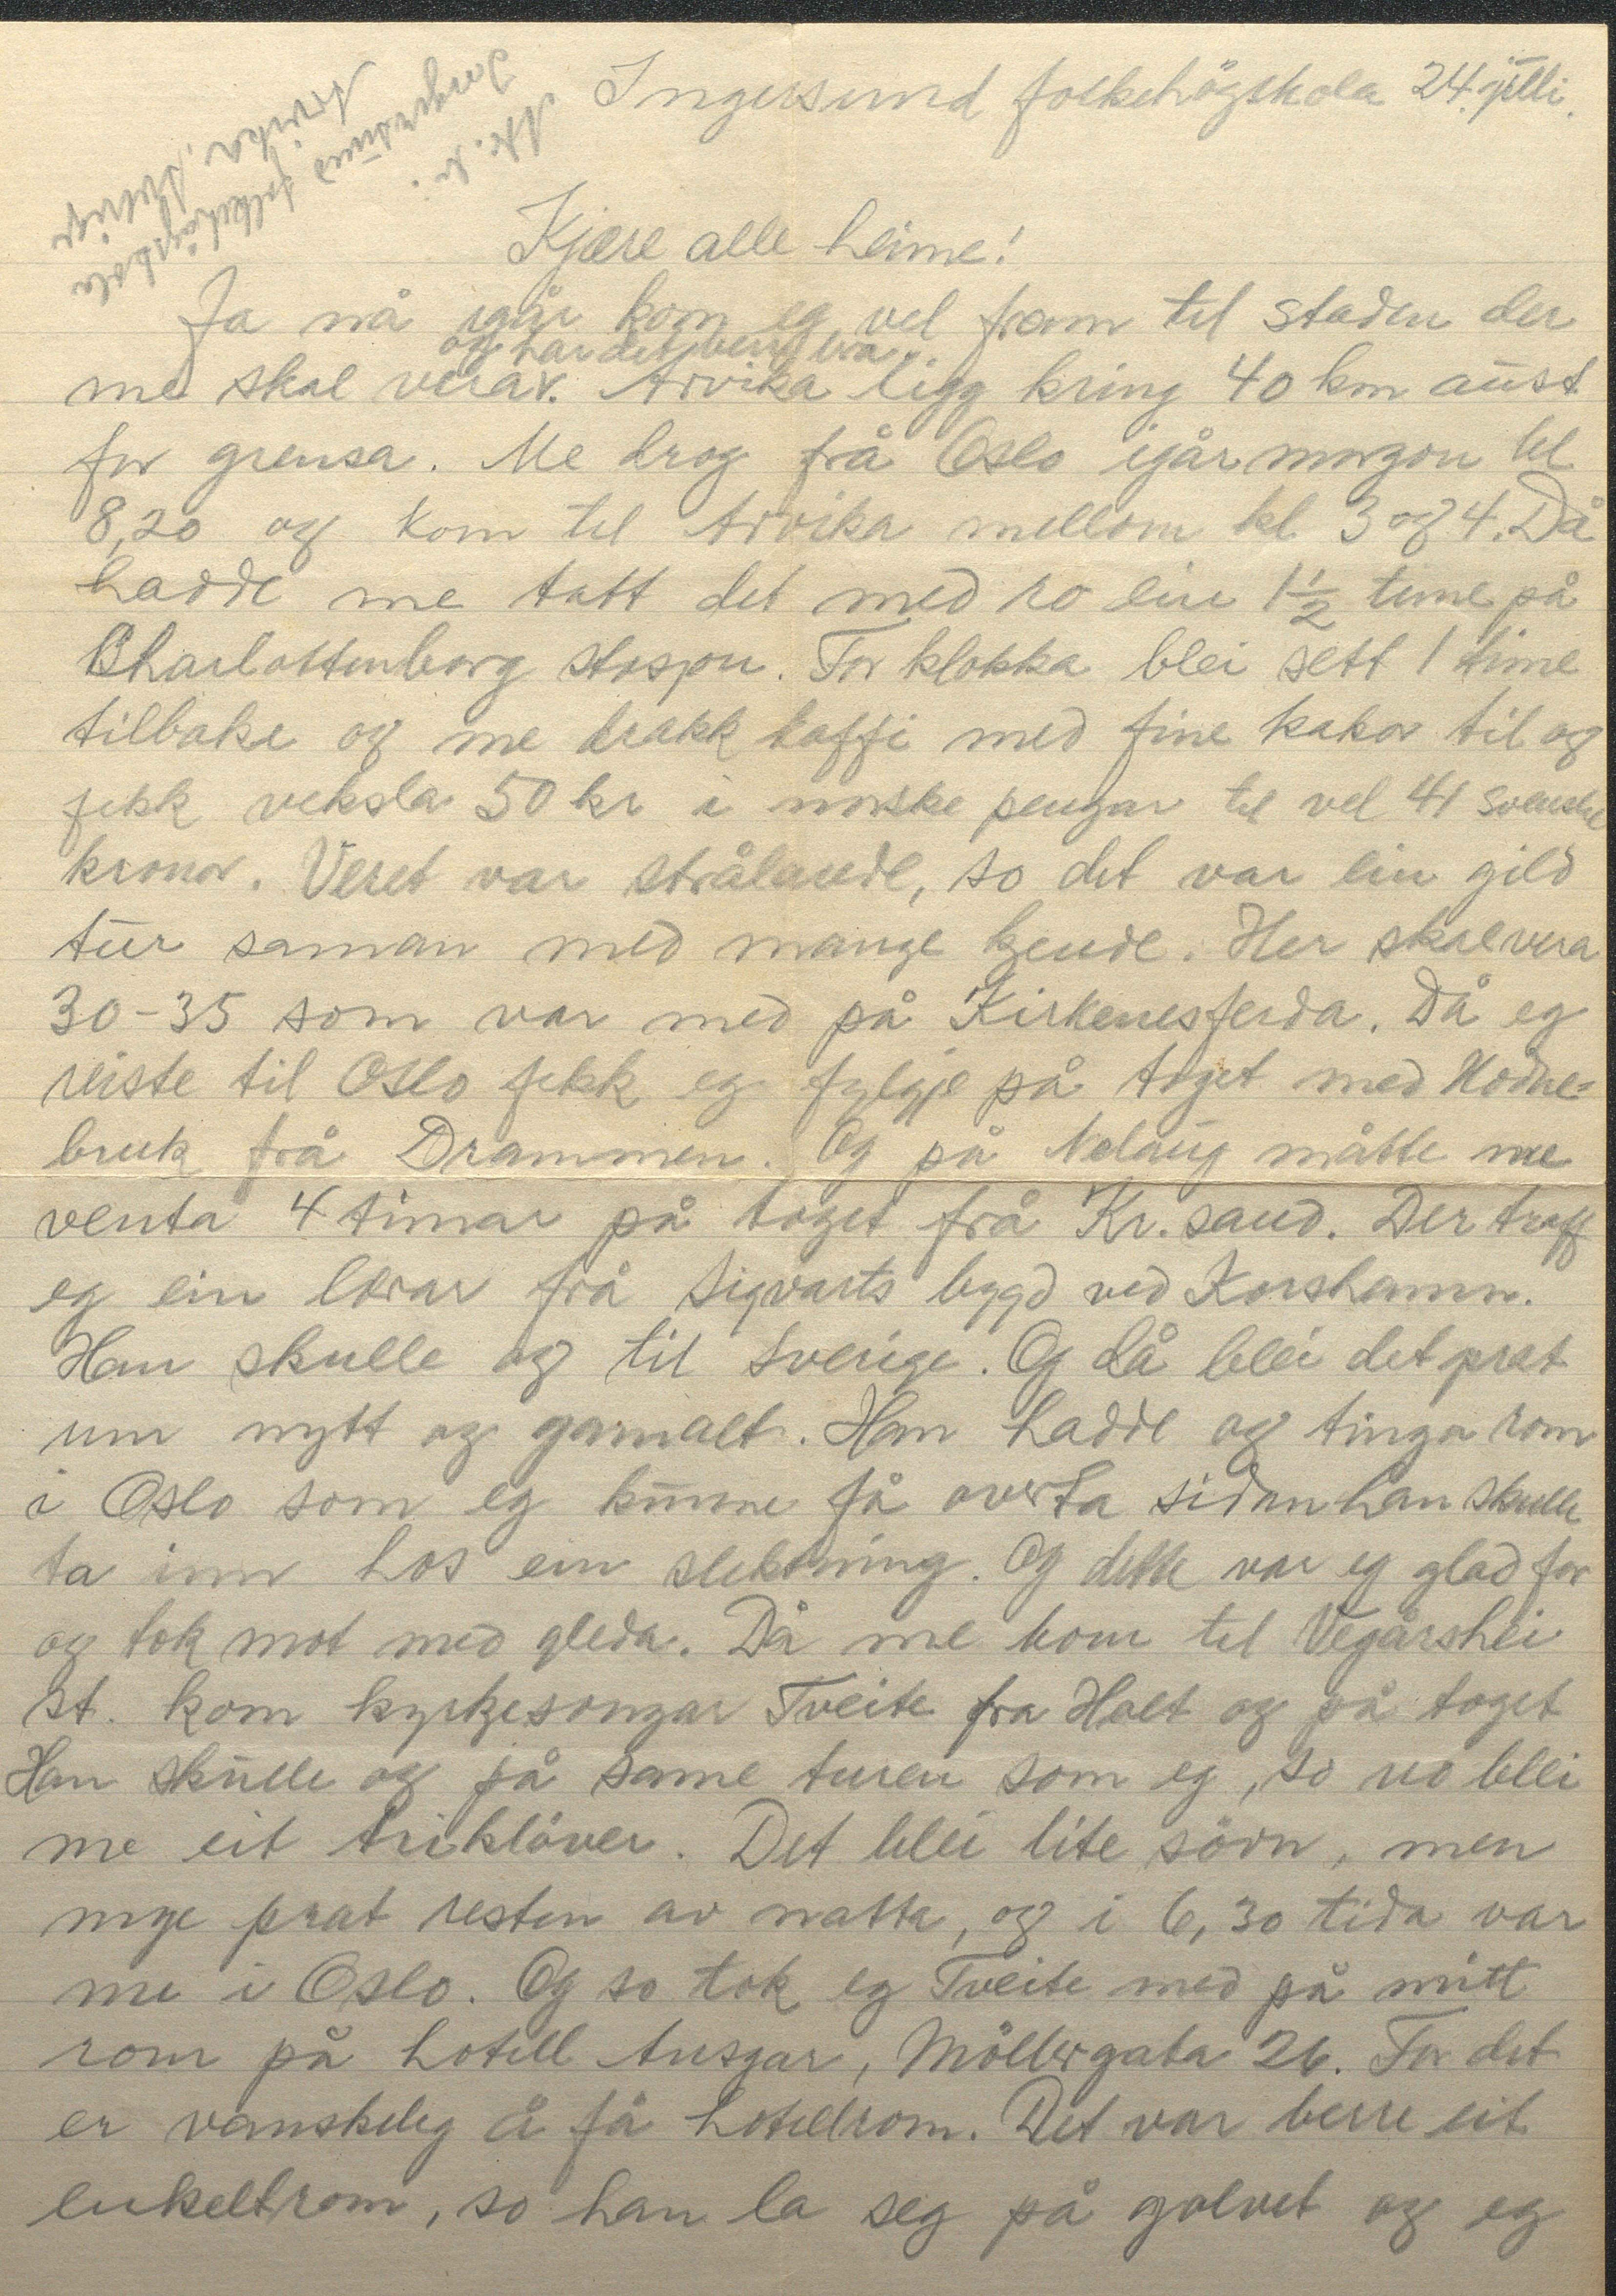 Ingersund folkehögskola 24. júlli.
Adr.:
Ingersund folkehögskola
Arvika, Sverige
Kjære alle heime!
Ja nå igår kom eg vel fram til staden der
og har det
me skal vera. Arvika ligg kring 40 km aust
for grensa. Me drog frå Oslo igår morgon kl
8,20 og kom til Arvika mellom kl 3 og 4. Då
hadde me tatt det med ro ein 1½ time på
Charlottenborg stasjon. For klokka blei sett 1 time
tilbake og me drakk kaffi med fine kakor til og
fekk veksla 50 kr i norske pengar til vel 41 svenske
kronor. Veret var strålande, so det var ein gild
tur saman med mange kjende. Her skal vera
30-35 som var med på Kirkenesferda. Då eg
reiste til Oslo fekk eg fylgje på toget med Hodne=
bruk frå Drammen. Og på Nelaug måtte me
venta 4 timar på toget frå Kr.sand. Der traff
eg ein lærar frå Sigvarts bygd ved Korshamn.
Han skulle og til Sverige. Og då blei det prat
um nytt og gamalt. Han hadde og tinga rom
i Oslo som eg kunne få overta sidan han skulle
ta inn hos ein slektning. Og dette var eg glad for
og tok mot med gleda. Då me kom til Vegårshei
st. kom kyrkjesongar Tveite fra Holt og på toget
Han skulle og på same turen som eg, so no blei
me eit trikløver. Det blei lite sövn, men
mye prat resten av natta, og i 6,30 tida var
me i Oslo. Og so tok eg Tveite med på mitt
rom på hotell Ansgar, Möllergata 26. For det
er vanskeleg å få hotellrom. Det var berre eit
enkeltrom, so han la seg på golvet og eg